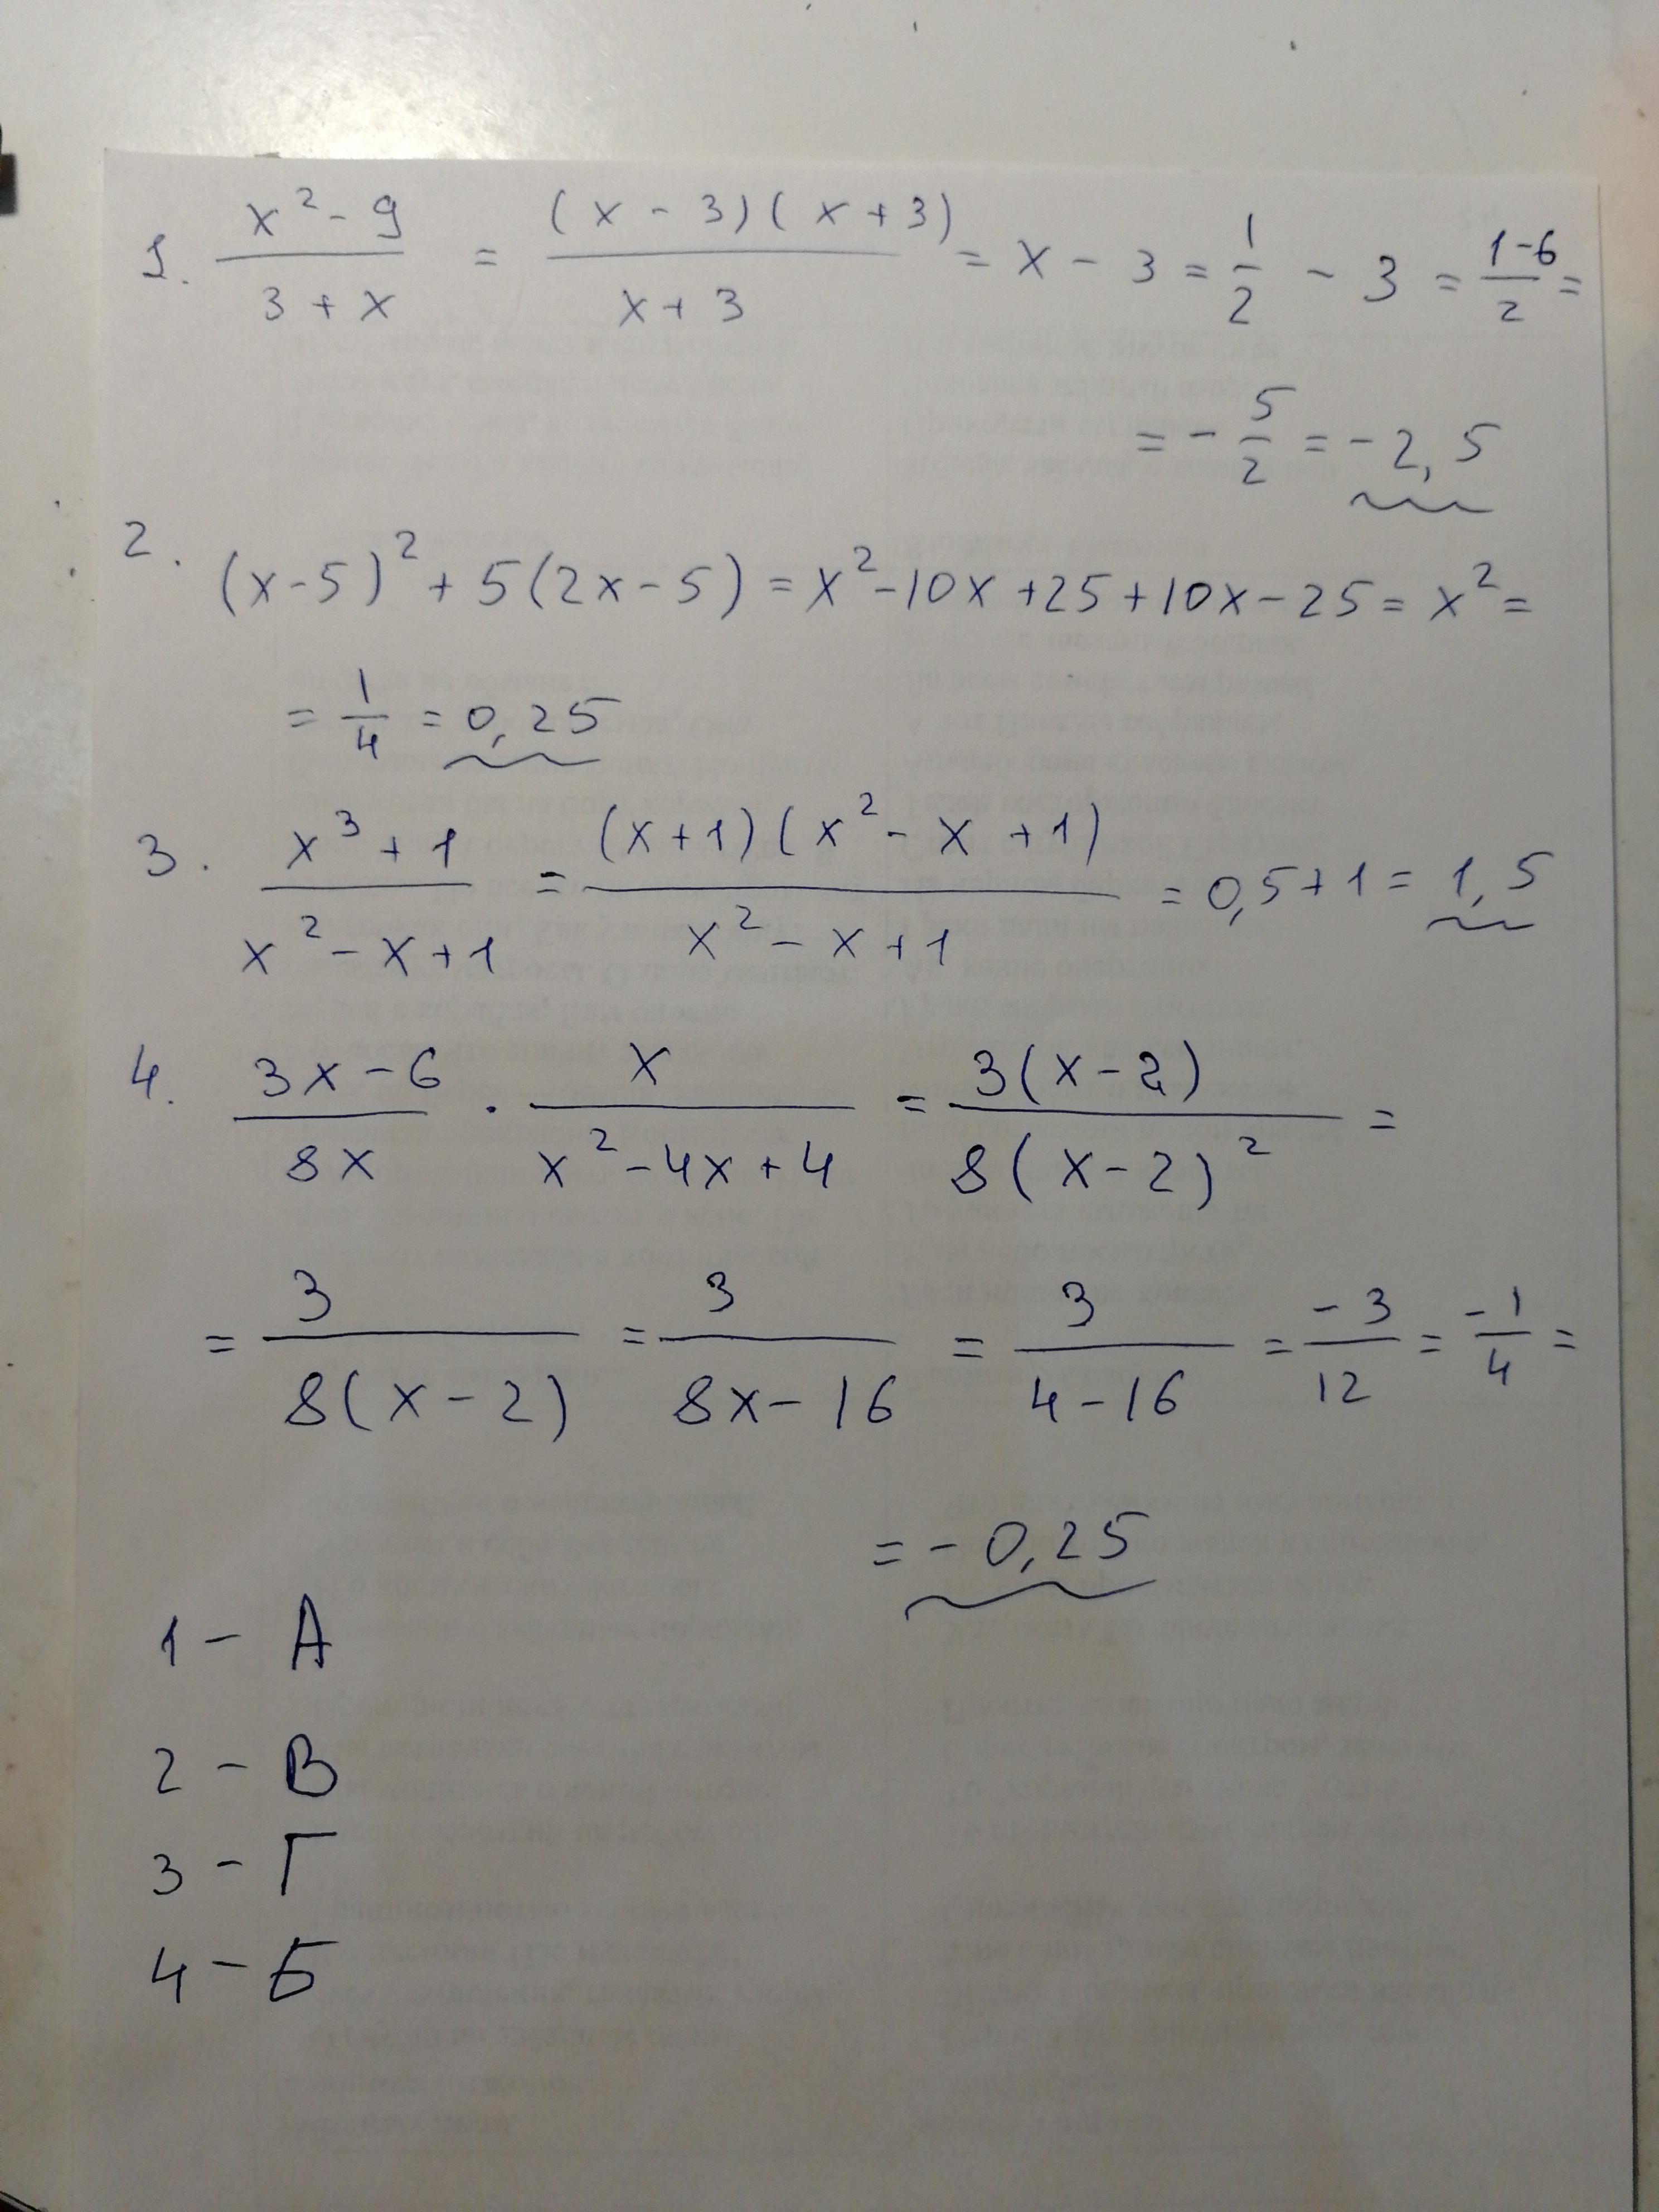 1. (x² - 9)/(3 + x) = ((x - 3)(x + 3))/(x + 3) = x - 3 = 1/2 - 3 = (1-6)/2 =
= - 5/2 = -2,5
2. (x-5)² + 5(2x-5) = x² - 10x + 25 + 10x - 25 = x² =
= 1/4 = 0,25
3. (x³ + 1)/(x² - x + 1) = ((x+1)(x² - x + 1))/(x² - x + 1) = 0,5 + 1 = 1,5
4. (3x - 6)/(8x) · x/(x² - 4x + 4) = (3(x-2))/(8(x-2)²) =
= 3/(8(x-2)) = 3/(8x - 16) = 3/(4 - 16) = (-3)/12 = (-1)/4 =
= - 0,25
1 - А
2 - В
3 - Г
4 - Б